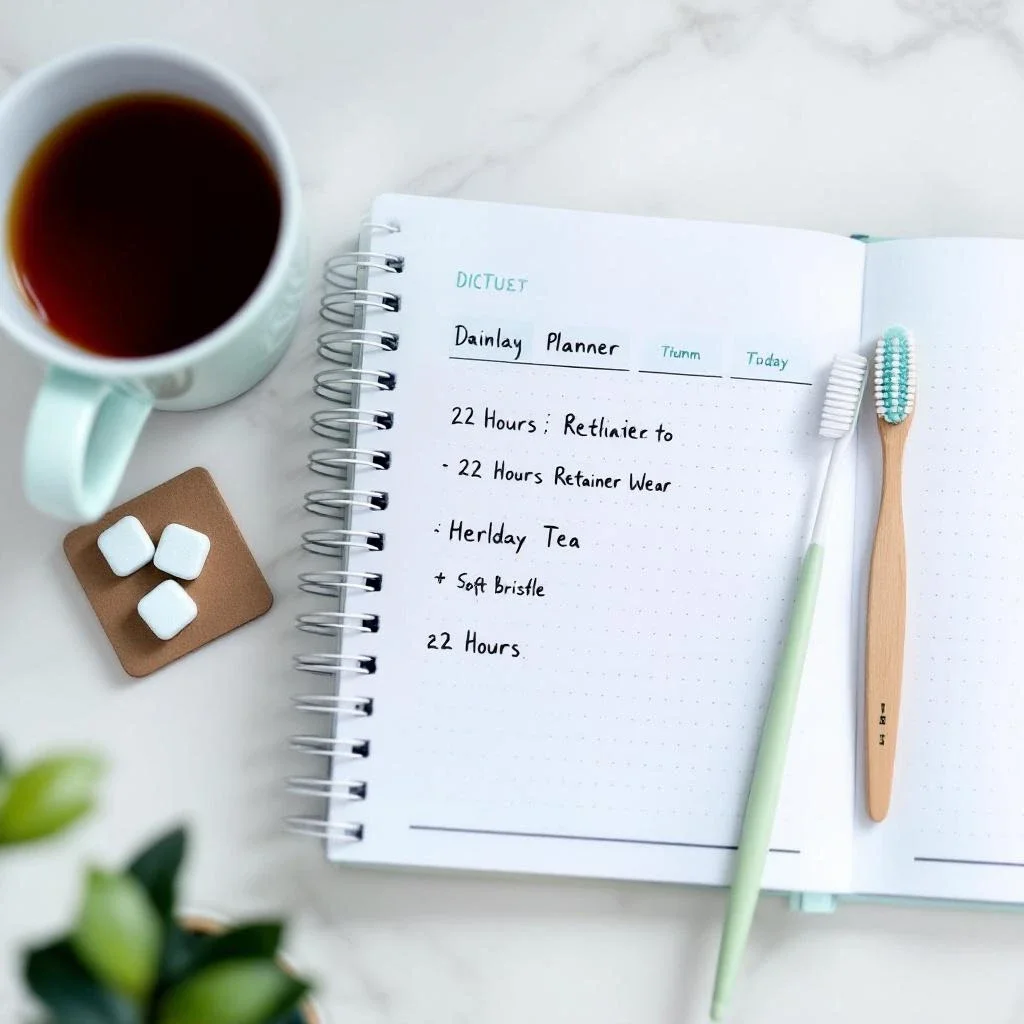 DICTUET
Dainlay Planner Thumm Today
22 Hours : Retlinier to
- 22 Hours Retainer Wear
: Herlday Tea
+ Soft Bristle
22 Hours